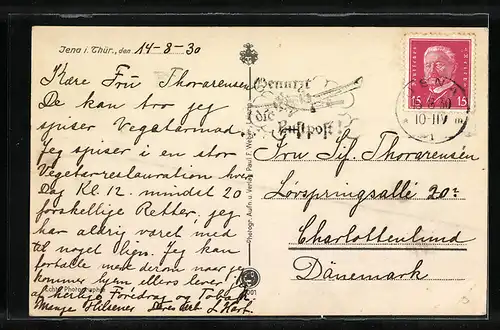 Jena i. Thür., den 14-8-30
Kære Fru Thorarensen
De kan tro jeg
spiser Vegetarmad
Jeg spiser i en stor
Vegeterrestauration hver
Dag Kl. 12. mindst 20
forskellige Retter. jeg
har aldrig været med
til noget lign. Jeg kan
fortælle mere derom naar jeg
kommer hjem ellers lever jeg
af heilige Foredrag og Tobak
Mange Hilsener
L. Kort.
Echte Photographie
Photogr. Aufn. u. Verlag Paul F.
Benutzt
die
Luftpost
JENA
10-11V
15 15
Fru Sif. Thorarensén
Lövspringsallé 20
Charlottenlund
Dänemark